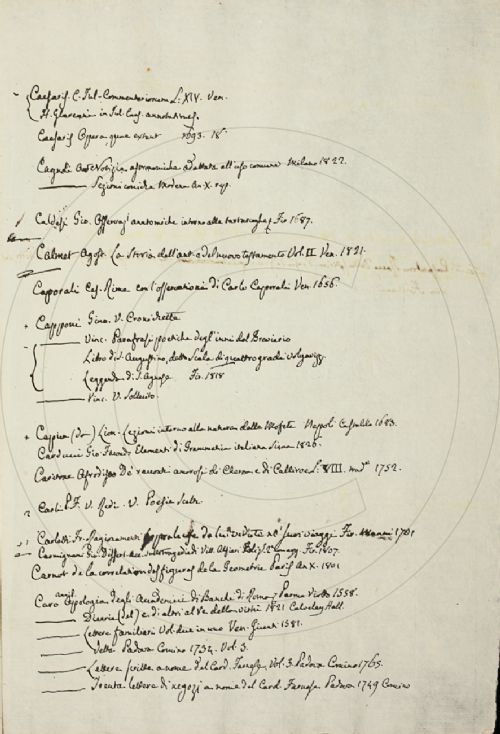 Caesaris C. Jul. Commentariorum L. XIV. Ven.
H. Glareani in Jul. Caes. annotationes.
Caesaris Opera quae extant 1693. 18°
Cagnoli Ant. Notizie astronomiche adattate all'uso comune Milano 1822.
Sezioni coniche Modena An. X. rep.
Caldesi Gio. Osservaz. anatomiche intorno alla tartarughe Fir. 1687.
Calmet Agost. La Storia dell'ant. e del nuovo testamento Vol. II Ven. 1821.
Caporali Ces. Rime con l'osservazioni di Carlo Caporali Ven. 1656.
+ Capponi Gino. V. Cronichetta
Vinc. Parafrasi poetiche degli inni del Breviario
Libro di S. Augustino, detto Scala di quattro gradi volgarizz.
Leggenda di S. Fir. 1818
Vinc. V. Sollecito.
+ Capua (da) Lion. Lezioni intorno alla natura delle Mofete Napoli 1683.
Carducci Gio. Elementi di Grammatica italiana Siena 1826.
Caritone Afrodiseo De' racconti amorosi di Cherea e di Calliroe L. VIII. 1752.
Carli P. F. V. Redi. V. Poesie Scelte
Carletti Fr. Ragionamenti sopra le cose da lui vedute ne' suoi viaggi Fir. 1701
Carmignani Gio. Dissert. sulle tragedie di Vitt. Alfieri Fir. 1807.
Carnot de la correlation des figures de la Geometrie Paris An. X. 1801
Caro Annib. Apologia degli Accademici di Banchi di Roma, Parma Viotto 1558.
Dicerie (del) e di altri al Re della virtù 1821 Calveley Hall.
Lettere familiari Vol. due in uno Ven. Giunti 1581.
Dette Padova Comino 1734. Vol. 3.
Lettere scritte a nome del Card. Farnese Vol. 3. Padova Comino 1765.
Trenta lettere di negozj a nome del Card. Farnese Padova 1749 Comino